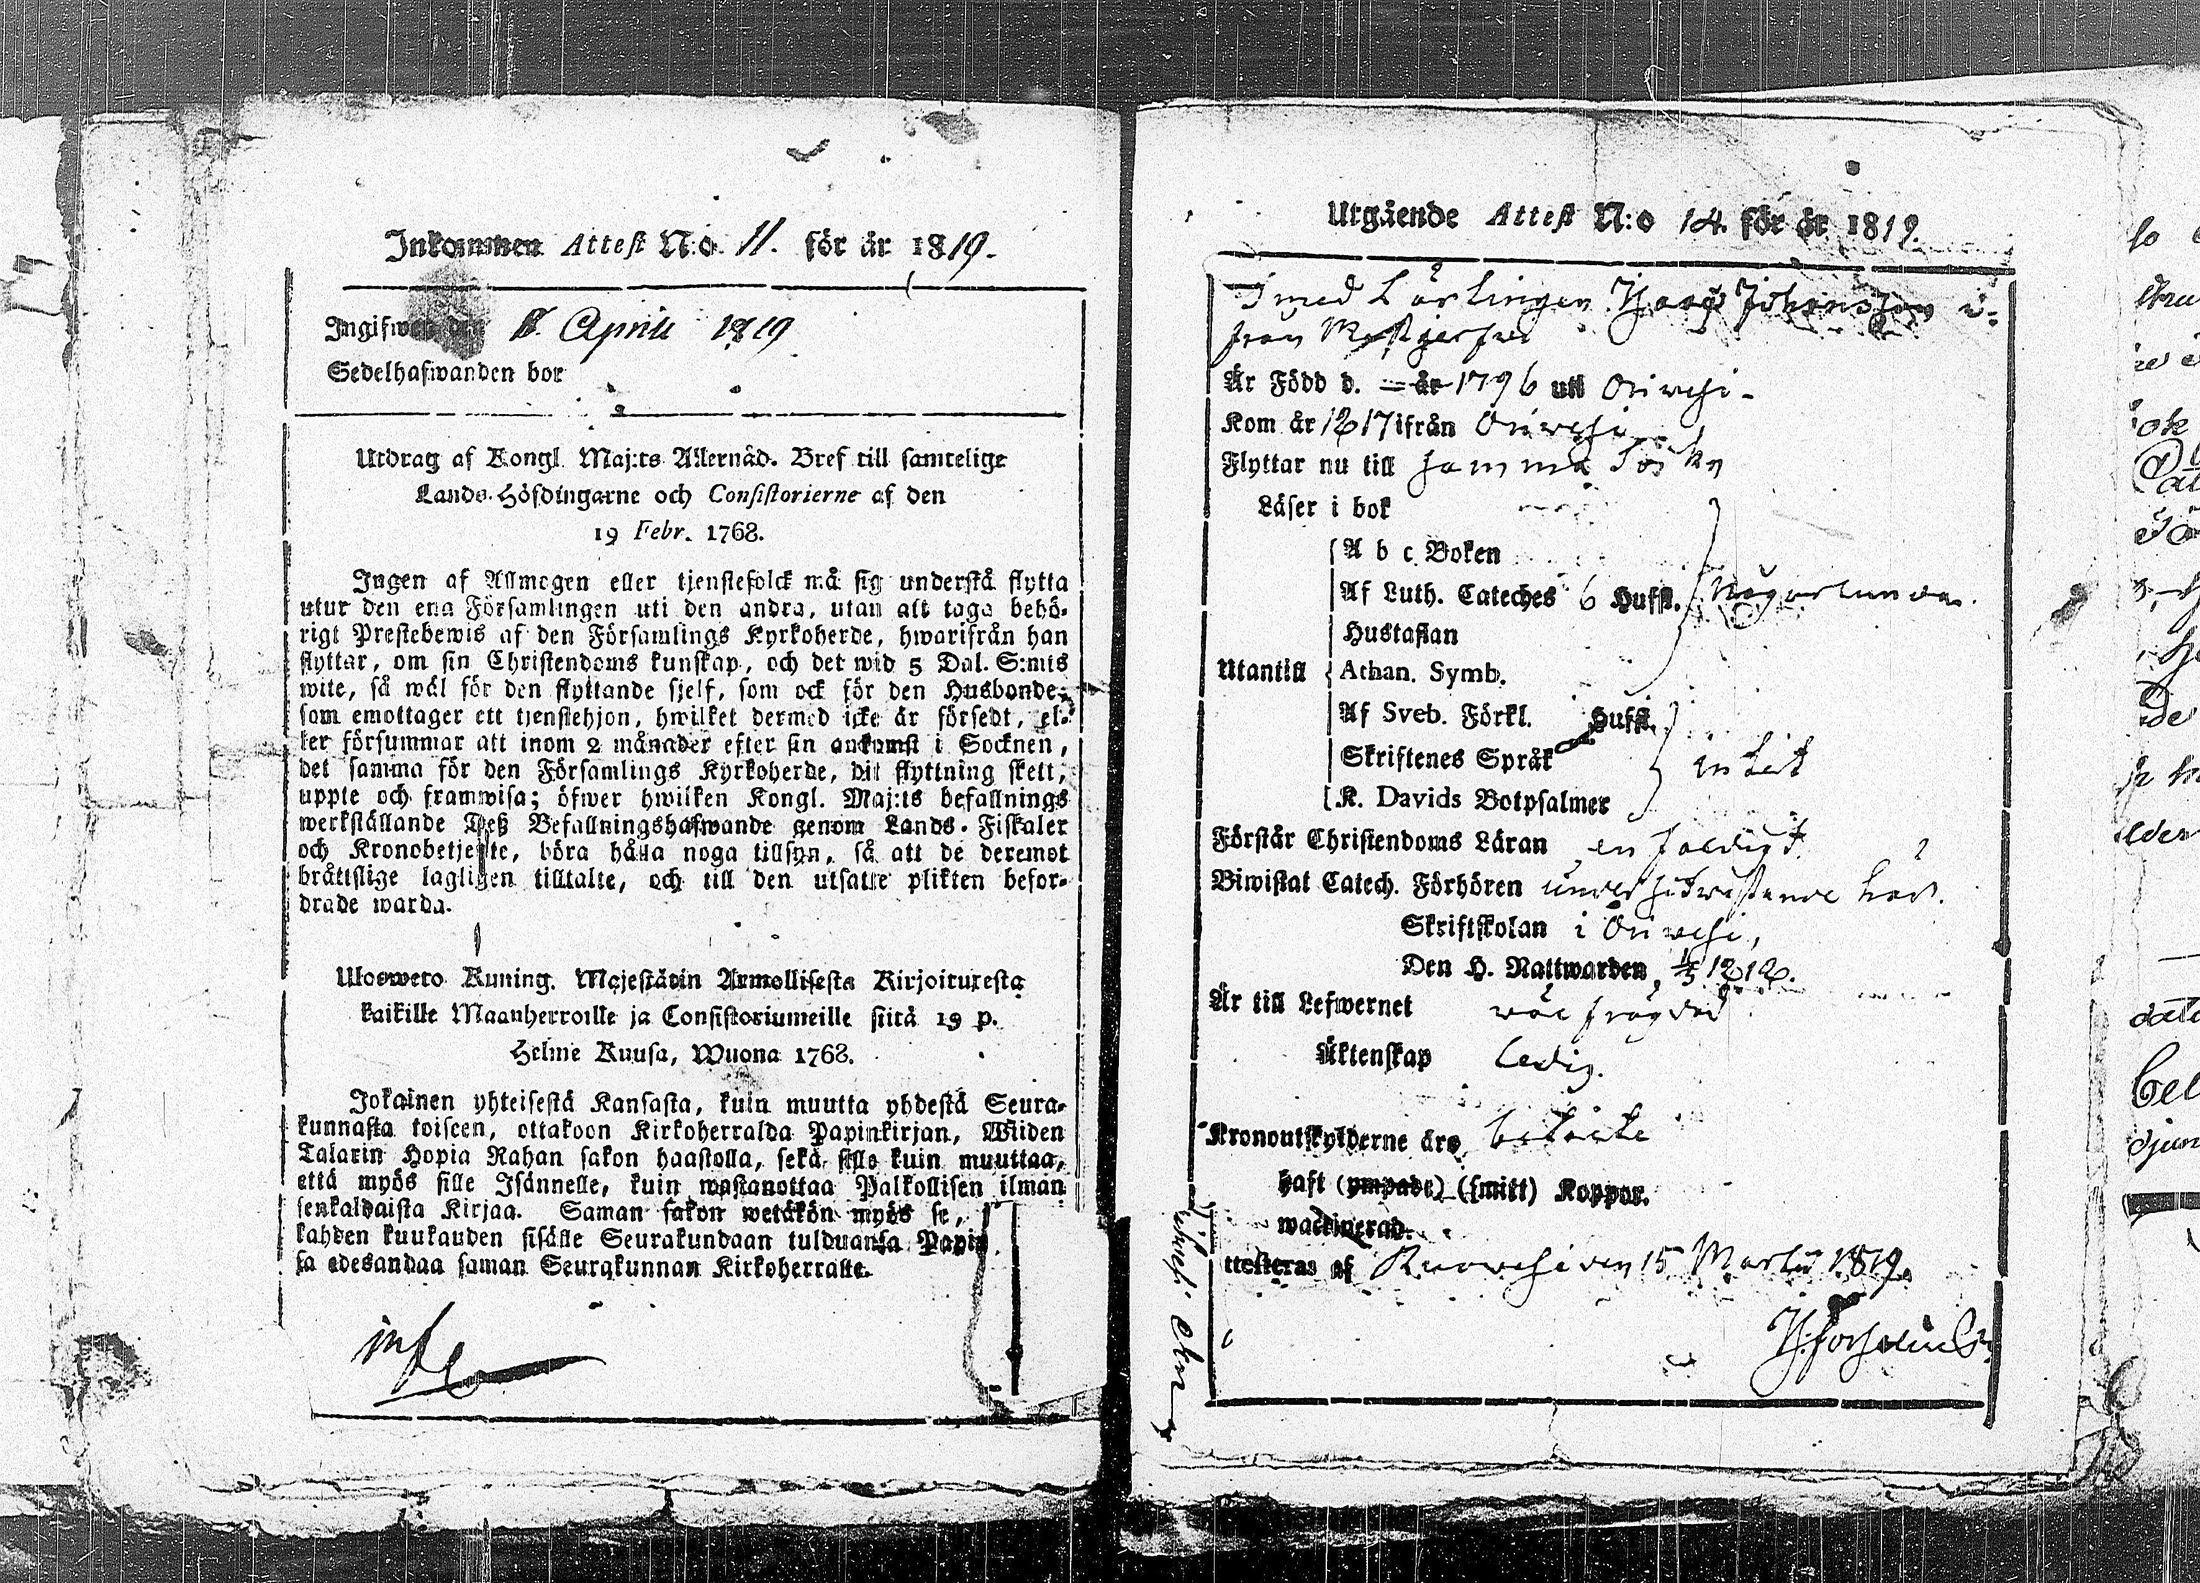 Inkommen Attest N:o 11. för år 1819.
Ingifwen den 8 April 1819
Sedelhafwanden bor
Utdrag af Kongl. Maj:ts Allernåd. Bref till samtelige
Lands-Höfdingarne och Consistorierne af den
19 Febr. 1768.
Ingen af Allmogen eller tjenstefolck må sig understå flytta
utur den ena Församlingen uti den andra, utan att taga behö-
rigt Prestebewis af den Församlings Kyrkoherde, hwarifrån han
flyttar, om sin Christendoms kunskap, och det wid 5 Dal. S:mts
wite, så wäl för den flyttande sjelf, som ock för den Husbonde,
som emottager ett tjenstehjon, hwilket dermed icke är försedt, el-
ler försummar att inom 2 månader efter sin ankomst i Socknen,
det samma för den Församlings Kyrkoherde, dit flyttning skett,
uppte och framwisa; öfwer hwilken Kongl. Maj:ts befallnings
werkställande Deß Befallningshafwande genom Lands-Fiskaler
och Kronobetjente, böra hålla noga tillsyn, så att de deremot
bråttslige lagligen tilltalte, och till den utsatte plikten befor-
drade warda.
Ulosweto Kuning. Majestätin Armollisesta Kirjoituxesta
kaikille Maanherroille ja Consistoriumeille siitä 19 p.
Helme Kuusa, Wuona 1768.
Jokainen yhteisestä Kansasta, kuin muutta yhdestä Seura-
kunnasta toiseen, ottakoon Kirkoherralda Papinkirjan, Wiiden
Talarin Hopia Rahan sakon haastolla, sekä sille kuin muuttaa,
että myös sille Isännelle, kuin wastanottaa Palkollisen ilman
senkaldaista Kirjaa. Saman sakon wetäkön myös se,
kahden kuukauden sisälle Seurakundaan tulduansa Papin
sa edesandaa saman Seurakunnan Kirkoherralle.
Utgående Attest N:o 14. för år 1819.
med Lärlingen Johansson i-
från
Är Född d. — år 1796 uti Oriwesi
Kom år 1817 ifrån Oriwesi
Flyttar nu till samma Sockn
Läser i bok
A b c Boken
Af Luth. Cateches 6 Hufst. någorlunda.
Hustaflan
Utantill Athan. Symb.
Af Sveb. Förkl. Hufst.
Skriftenes Språk intet
K. Davids Botpsalmer
Förstår Christendoms Läran enfaldigt.
Biwistat Catech. Förhören här.
Skriftskolan i Oriwesi,
Den H. Nattwarden 1818.
Är till Lefwernet wäl frägdad
Äktenskap Ledig.
Kronoutskylderne äro betalte
haft (ympade) (smitt) Koppor.
waccinerad.
ttesteras af Ruowesi den 15 Martii 1819.